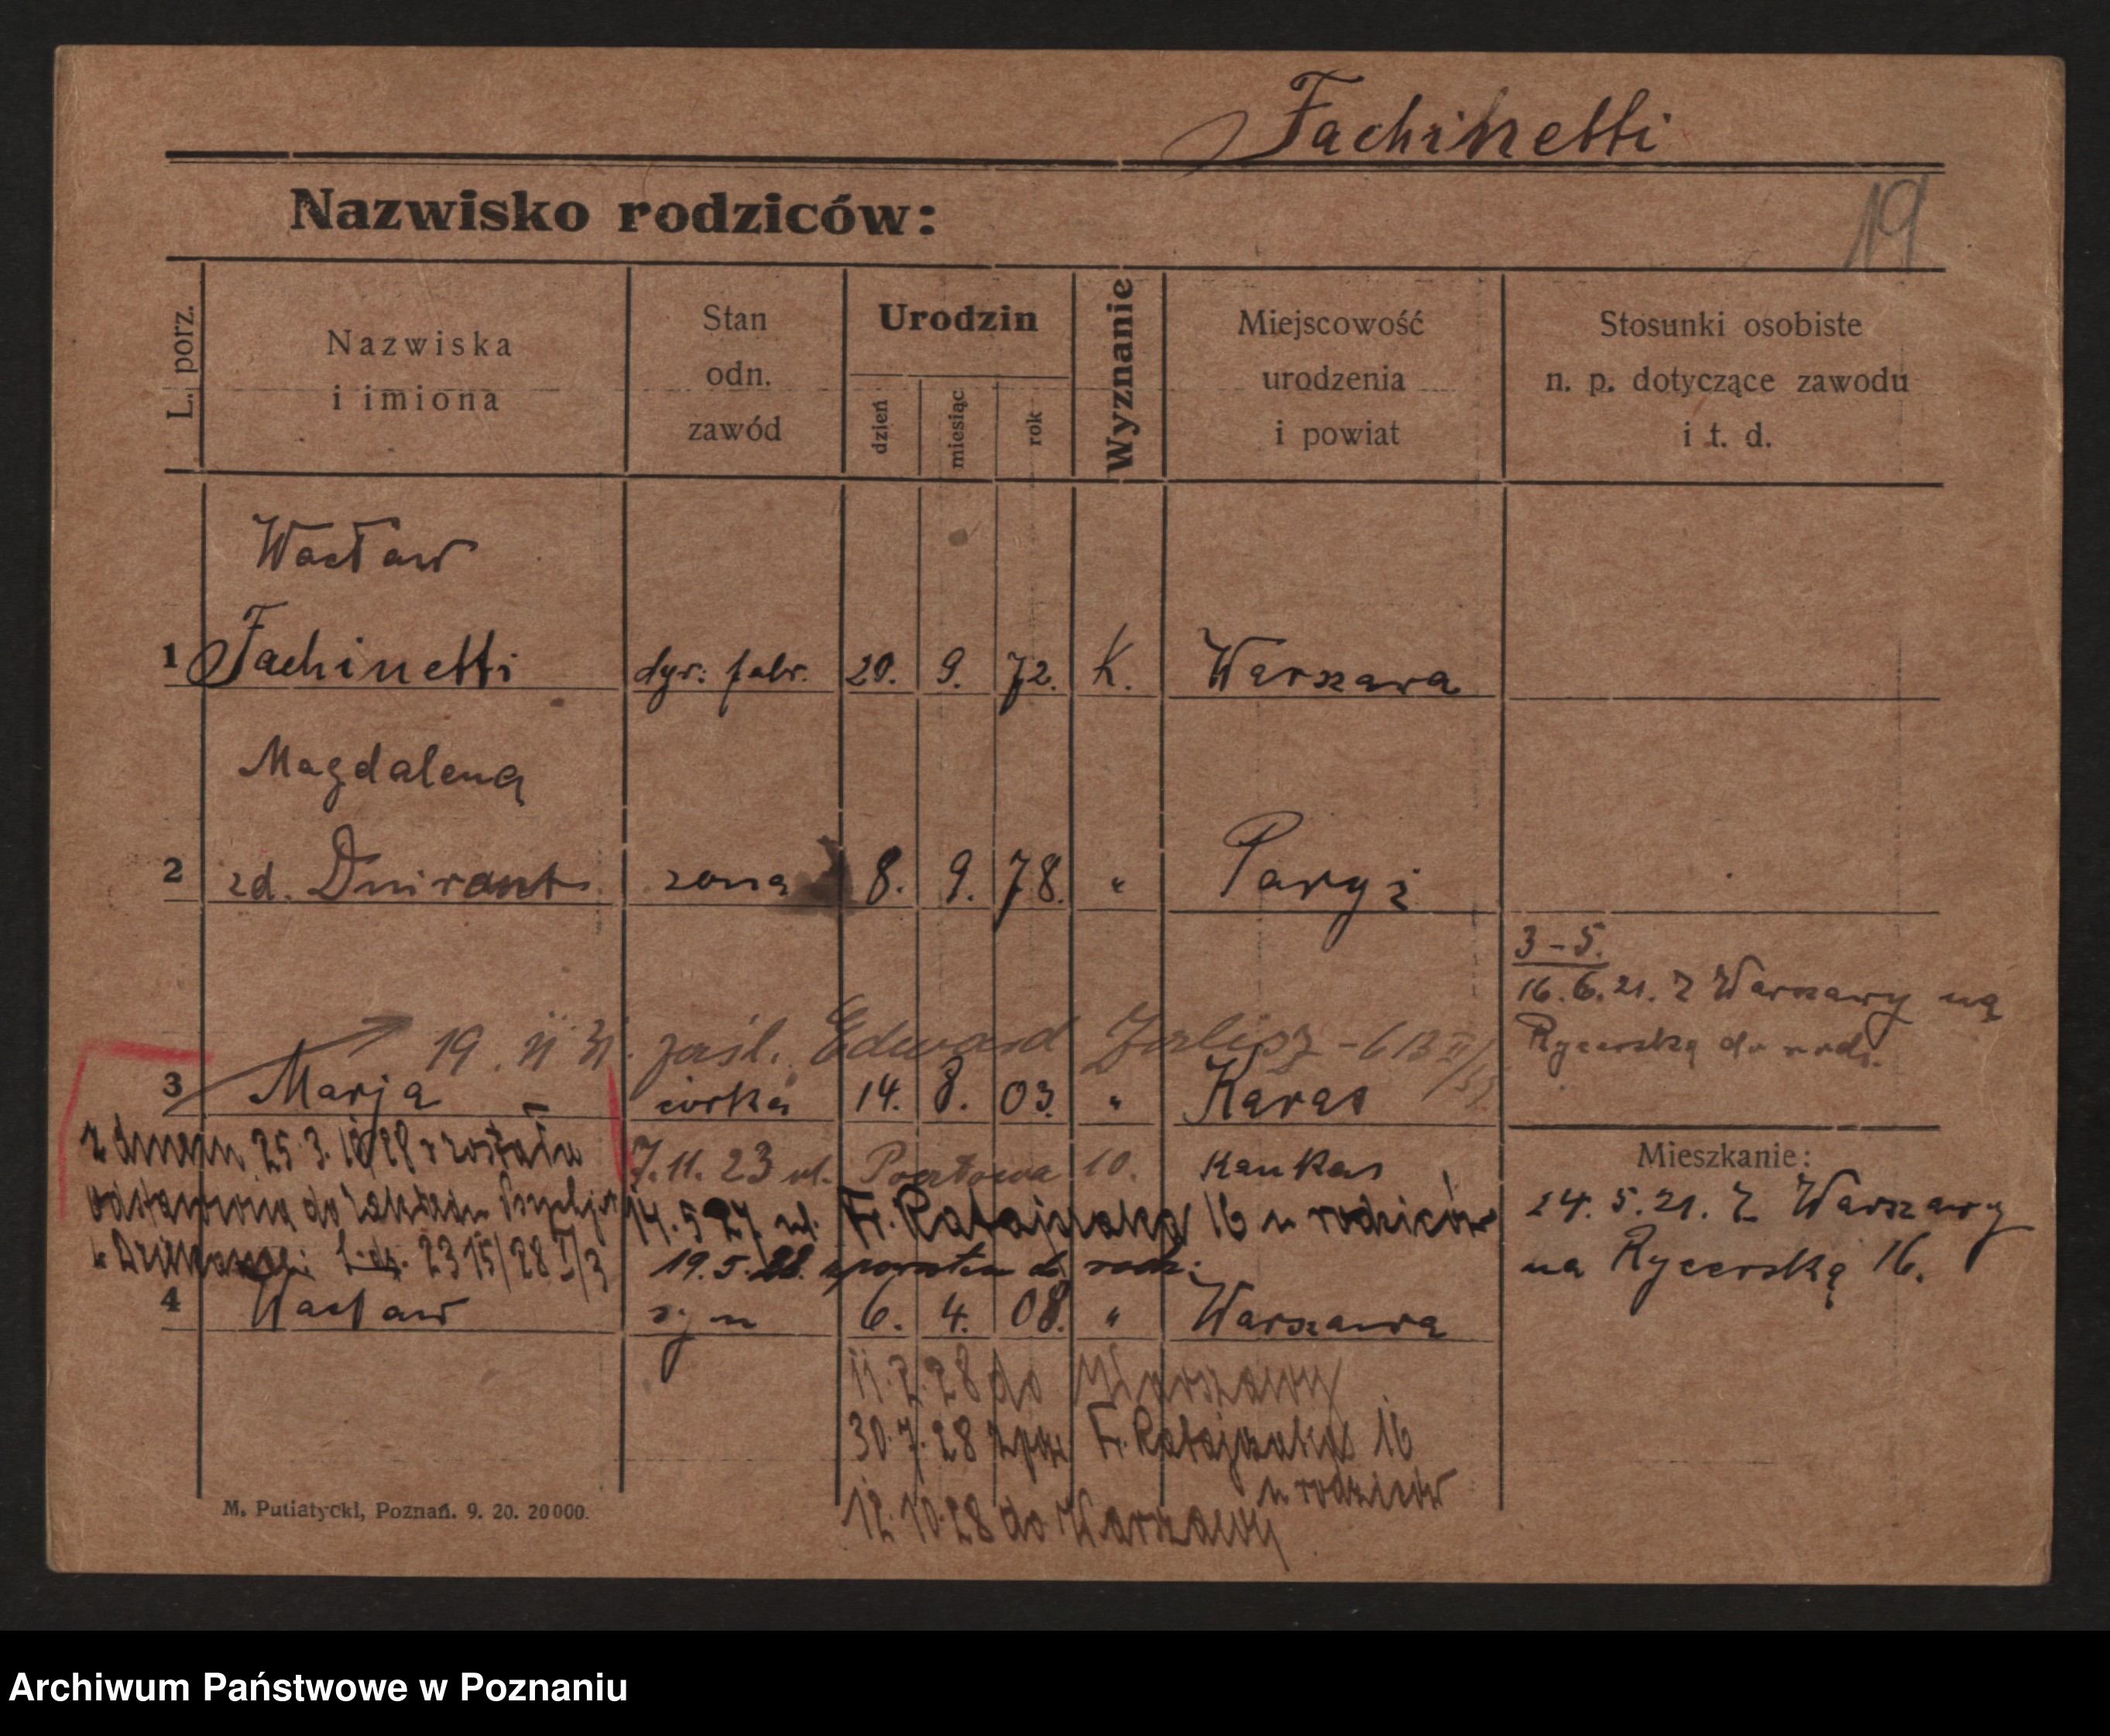 Fachinetti
19
Nazwisko rodziców:
L. porz.
Nazwiska
i imiona
Stan
odn.
zawód
Urodzin
dzień
miesiąc
rok
Wyznanie
Miejscowość
urodzenia
i powiat
Stosunki osobiste
n. p. dotyczące zawodu
i t. d.
Wacław
1 Fachinetti dyr. fabr. 20. 9. 72. K. Warszawa
Magdalena
2 zd. żona 8. 9. 78. " Paryż
3-5.
16.6.21. z Warszawy na
Rycerską do rodz.
19. II 31. zaśl. Edward
3 Marja córka 14. 8. 03. " Karas
Kaukas
z dniem 25.3.1928 r została
odstawiona do zakładu
2315/28 I/3
7.11.23 ul. Pocztowa 10.
14.5.27. ul. Fr. Ratajczaka 16 u rodziców
19.5.28. z powrotem do rodz.
Mieszkanie:
24.5.21. z Warszawy
na Rycerską 16.
4 Wacław syn 6. 4. 08. " Warszawa
11.2.28 do Warszawy
30.7.28 zpow Fr. Ratajczaka 16
u rodziców
12.10.28 do Warszawy
M. Putiatycki, Poznań. 9. 20. 20000.
Archiwum Państwowe w Poznaniu